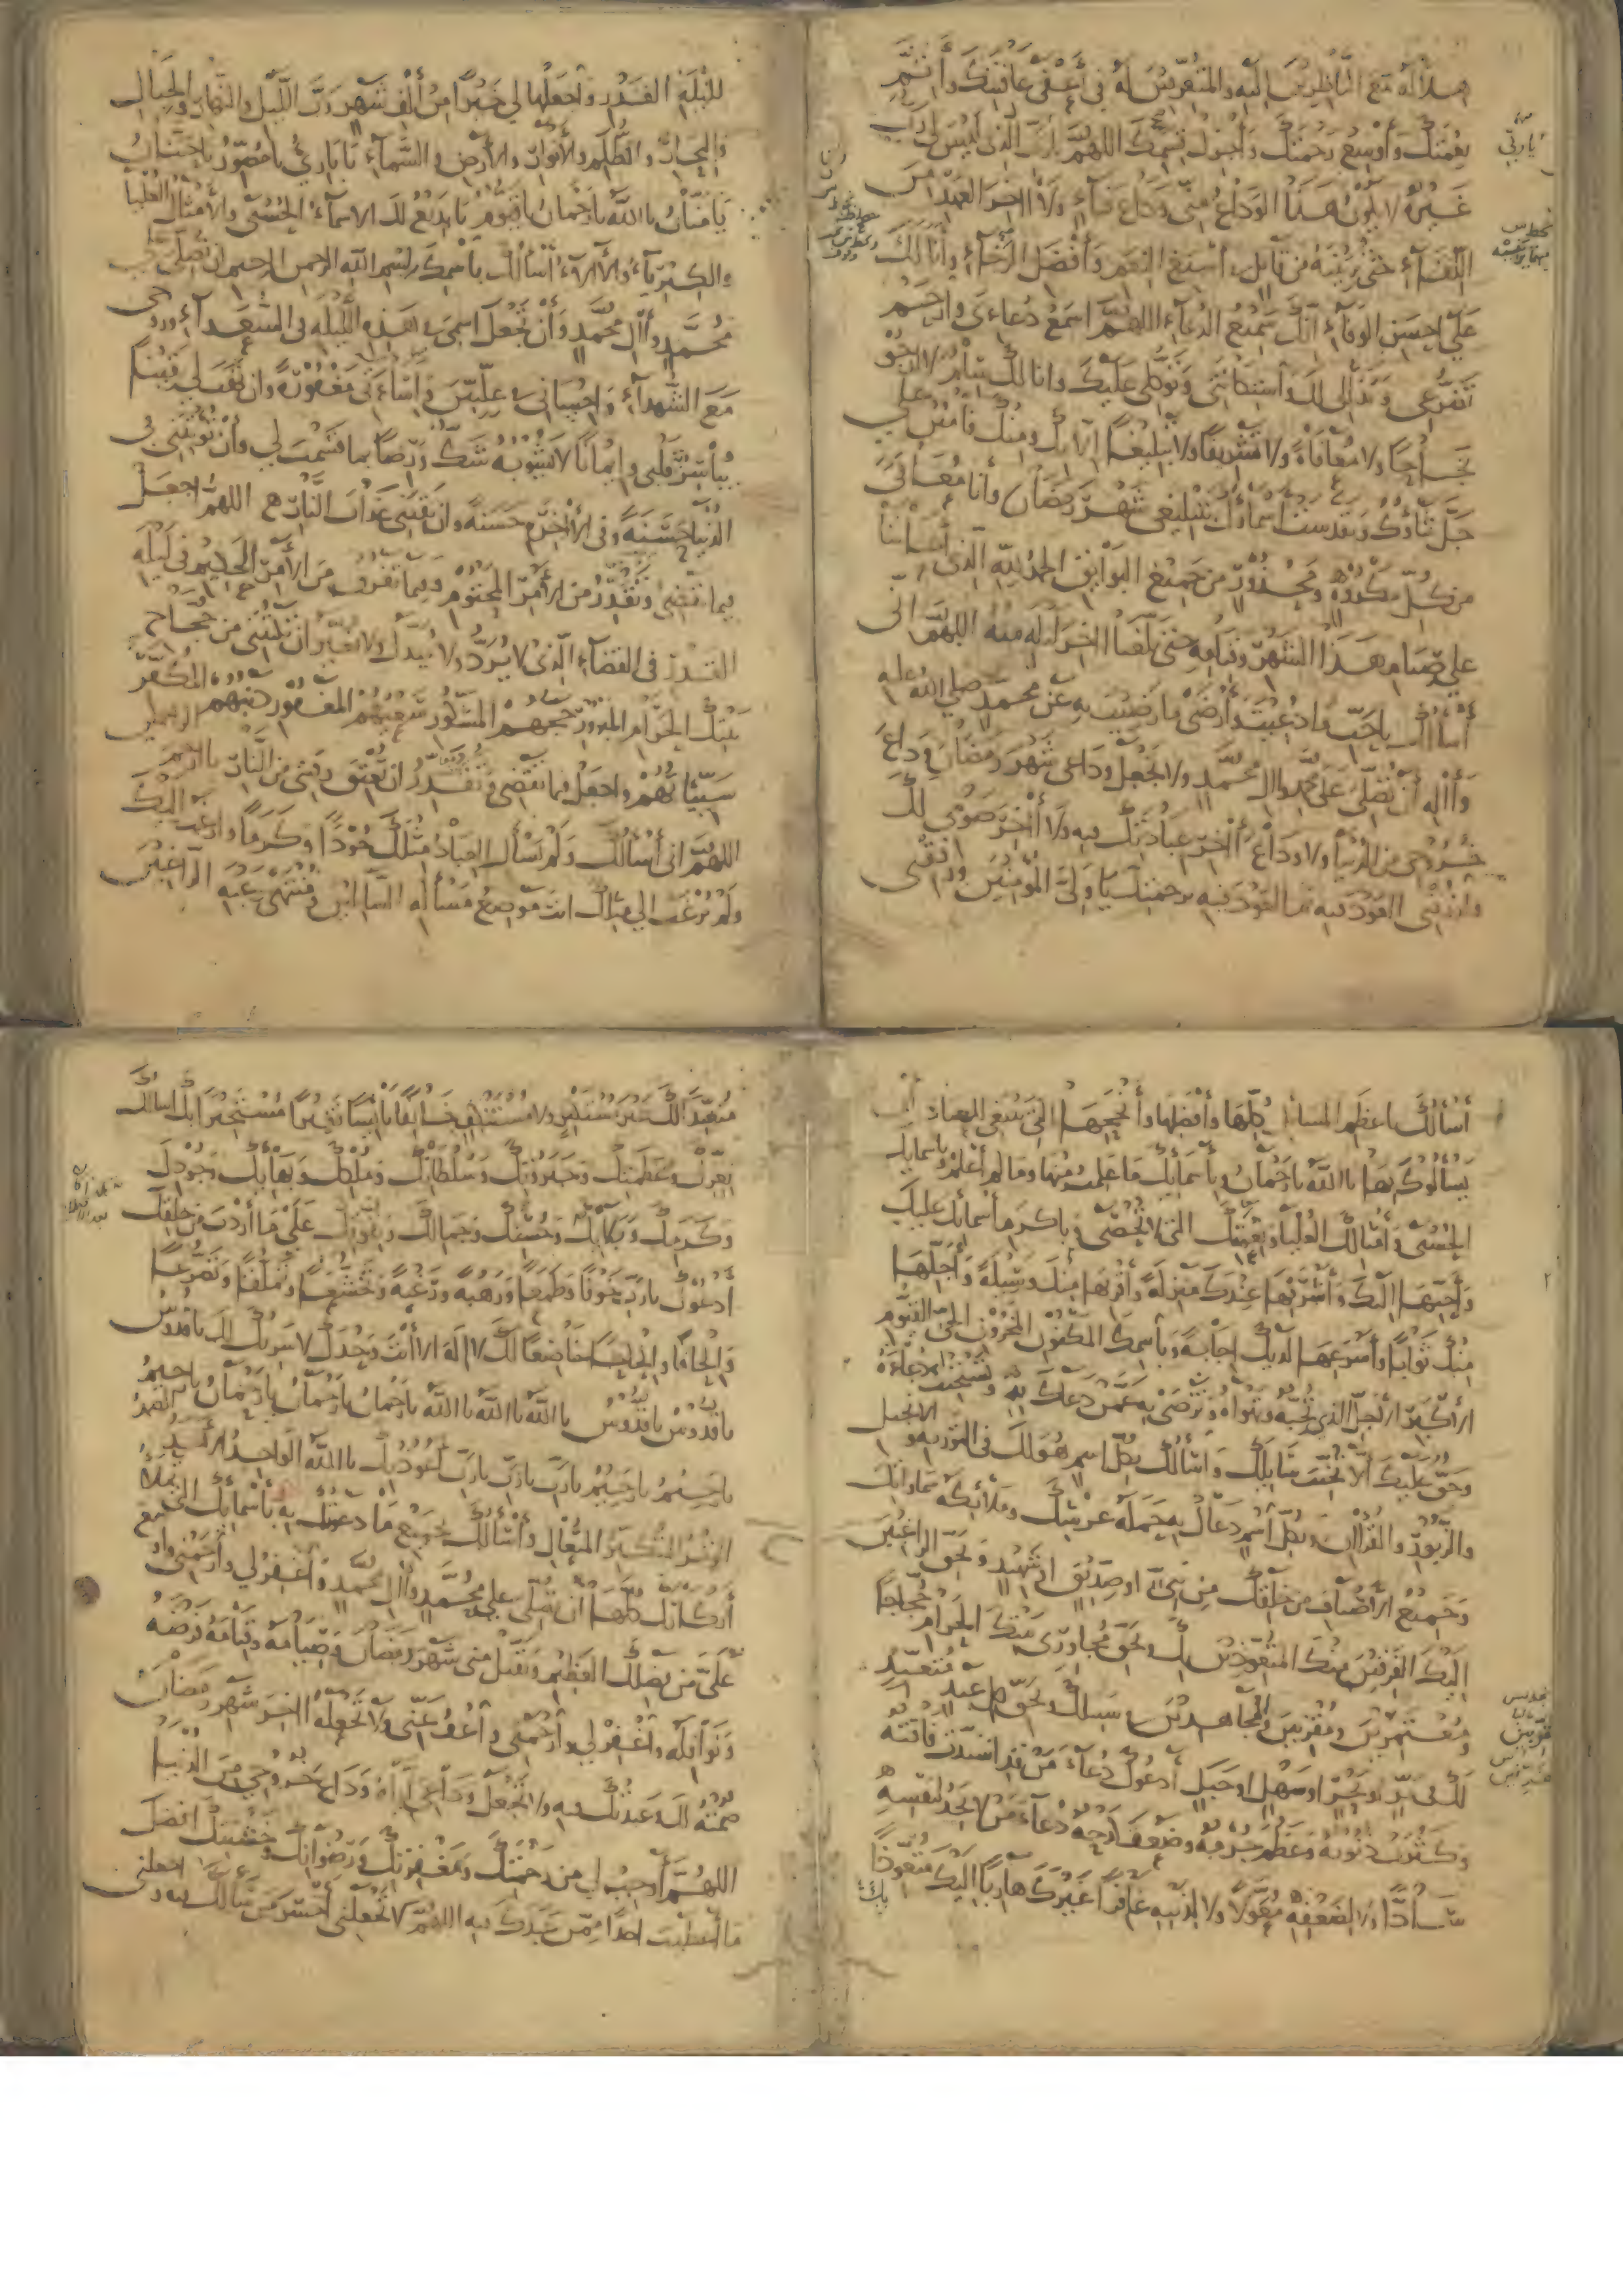 هلاله مع الناظرين اليه والمتعرفين له في أعفى عافيتك وأتم
نعمتك وأوسع رحمتك وأجزل قسمك اللهم يا رب الذي ليس لي رب
غيره لا يكون هذا الوداع مني وداع فناء ولا اخر العهد من
اللقاء حتى ترينيه من قابل في أسبغ النعم وأفضل الرخاء وأنا لك
على احسن الوفاء انك سميع الدعاء اللهم اسمع دعاءي وارحم
تضرعي وتذللي لك واستكانتي وتوكلي عليك وانا لك سلم لا ارجو
نجاحا ولا معافاة ولا تشريفا ولا تبليغا الا بك ومنك فامنن علي
جل ثناؤك وتقدست اسماؤك بتبليغي شهر رمضان وأنا معافى
من كل مكروه ومحذور من جميع البوايق الحمد لله الذي أعاننا
على صيام هذا الشهر وقيامه حتى بلغنا اخر ليلة منه اللهم اني
أسألك باحب ما دعيت وأرضى ما رضيت به عن محمد صلى الله عليه
وآله أن تصلي على محمد وال محمد ولا تجعل وداعي شهر رمضان وداع
خروجي من الدنيا ولا وداع اخر عبادتك فيه ولا اخر صومي لك
وارزقني العود فيه ثم العود فيه برحمتك يا ولي المؤمنين ووفقني
يا رب
لليلة القدر واجعلها لي خيرا من ألف شهر رب الليل والنهار والجبال
والبحار والظلم والأنوار والأرض والسماء يا باري يا مصور يا حنان
يا منان يا الله يا رحمان يا قيوم يا بديع لك الاسماء الحسنى والأمثال العليا
والكبرياء والآلاء أسألك باسمك بسم الله الرحمن الرحيم ان تصلي على
محمد وآل محمد وأن تجعل اسمي في هذه الليلة في السعداء وروحي
مع الشهداء واحساني في عليين واساءتي مغفورة وان تهب لي يقينا
تباشر به قلبي وايمانا لا يشوبه شك ورضا بما قسمت لي وأن تؤتيني في
الدنيا حسنة وفي الأخرة حسنة وان تقيني عذاب النار اللهم اجعل
فيما تقضي وتقدر من الأمر المحتوم وفيما تفرق من الأمر الحكيم في ليلة
القدر في القضاء الذي لا يرد ولا يبدل ولا يغير ان تكتبني من حجاج
بيتك الحرام المبرور حجهم المشكور سعيهم المغفور ذنبهم المكفر
سيئاتهم واجعل فيما تقضي وتقدر ان تعتق رقبتي من النار يا ارحم الراحمين
اللهم اني أسألك ولم يسأل العباد مثلك جودا وكرما وارغب اليك
ولم يرغب الى مثلك انت موضع مسألة السائلين ومنتهى رغبة الراغبين
أسألك باعظم المسائل كلها وأفضلها وأنجحها التي ينبغي للعباد أن
يسألوك بها يا الله يا رحمان وبأسمائك ما علمت منها وما لم أعلم وباسمائك
الحسنى وأمثالك العليا ونعمتك التي لا تحصى وباكرم أسمائك عليك
وأحبها اليك وأشرفها عندك منزلة وأقربها منك وسيلة وأجزلها
منك ثوابا وأسرعها لديك اجابة وباسمك المكنون المخزون الحي القيوم
الأكبر الأجل الذي تحبه وتهواه وترضى به عمن دعاك به وتستجيب دعاءه
وحق عليك ألا تخيب سائلك وأسألك بكل اسم هو لك في التورية والانجيل
والزبور والقرآن وبكل اسم دعاك به حملة عرشك وملائكة سماواتك
وجميع الأصناف من خلقك من نبي او صديق او شهيد وبحق الراغبين
اليك الفرقين منك المتعوذين بك وبحق مجاوري بيتك الحرام حجاجا
ومعتمرين ومقربين والمجاهدين في سبيلك وبحق كل عبد متعبد
لك في بر او بحر او سهل او جبل أدعوك دعاء من قد اشتدت فاقته
وكثرت ذنوبه وعظم جرمه وضعف كدحه دعاء من لا يجد لنفسه
سادا ولا لضعفه مقولا ولا لذنبه غافرا غيرك هاربا اليك متعوذا
بك
متعبدا لك غير مستكبر ولا مستنكف خائفا بائسا فقيرا مستجيرا بك اسالك
بعزتك وعظمتك وجبروتك وسلطانك وملكك وبهائك وجودك
وكرمك وبآلائك وحسنك وجمالك وبقوتك على ما أردت من خلقك
أدعوك يا رب خوفا وطمعا ورهبة ورغبة وتخشعا وتملقا وتضرعا
والحافا والحاحا خاضعا لك لا اله الا أنت وحدك لا شريك لك يا قدوس
يا قدوس يا قدوس يا الله يا الله يا الله يا رحمان يا رحمان يا رحمان يا رحيم
يا رحيم يا رحيم يا رب يا رب يا رب أعوذ بك يا الله الواحد الأحد الصمد
الوتر المتكبر المتعال وأسألك بجميع ما دعوتك به وبأسمائك التي تملأ
أركانك كلها ان تصلي على محمد وآل محمد واغفر لي وارحمني واوسع
علي من فضلك العظيم وتقبل مني شهر رمضان وصيامه وقيامه وفرضه
ونوافله واغفر لي وارحمني واعف عني ولا تجعله اخر شهر رمضان
صمته لك وعبدتك فيه ولا تجعل وداعي اياه وداع خروجي من الدنيا
اللهم أوجب لي من رحمتك ومغفرتك ورضوانك وخشيتك افضل
ما أعطيت احدا ممن عبدك فيه اللهم لا تجعلني أخسر من سألك فيه واجعلني